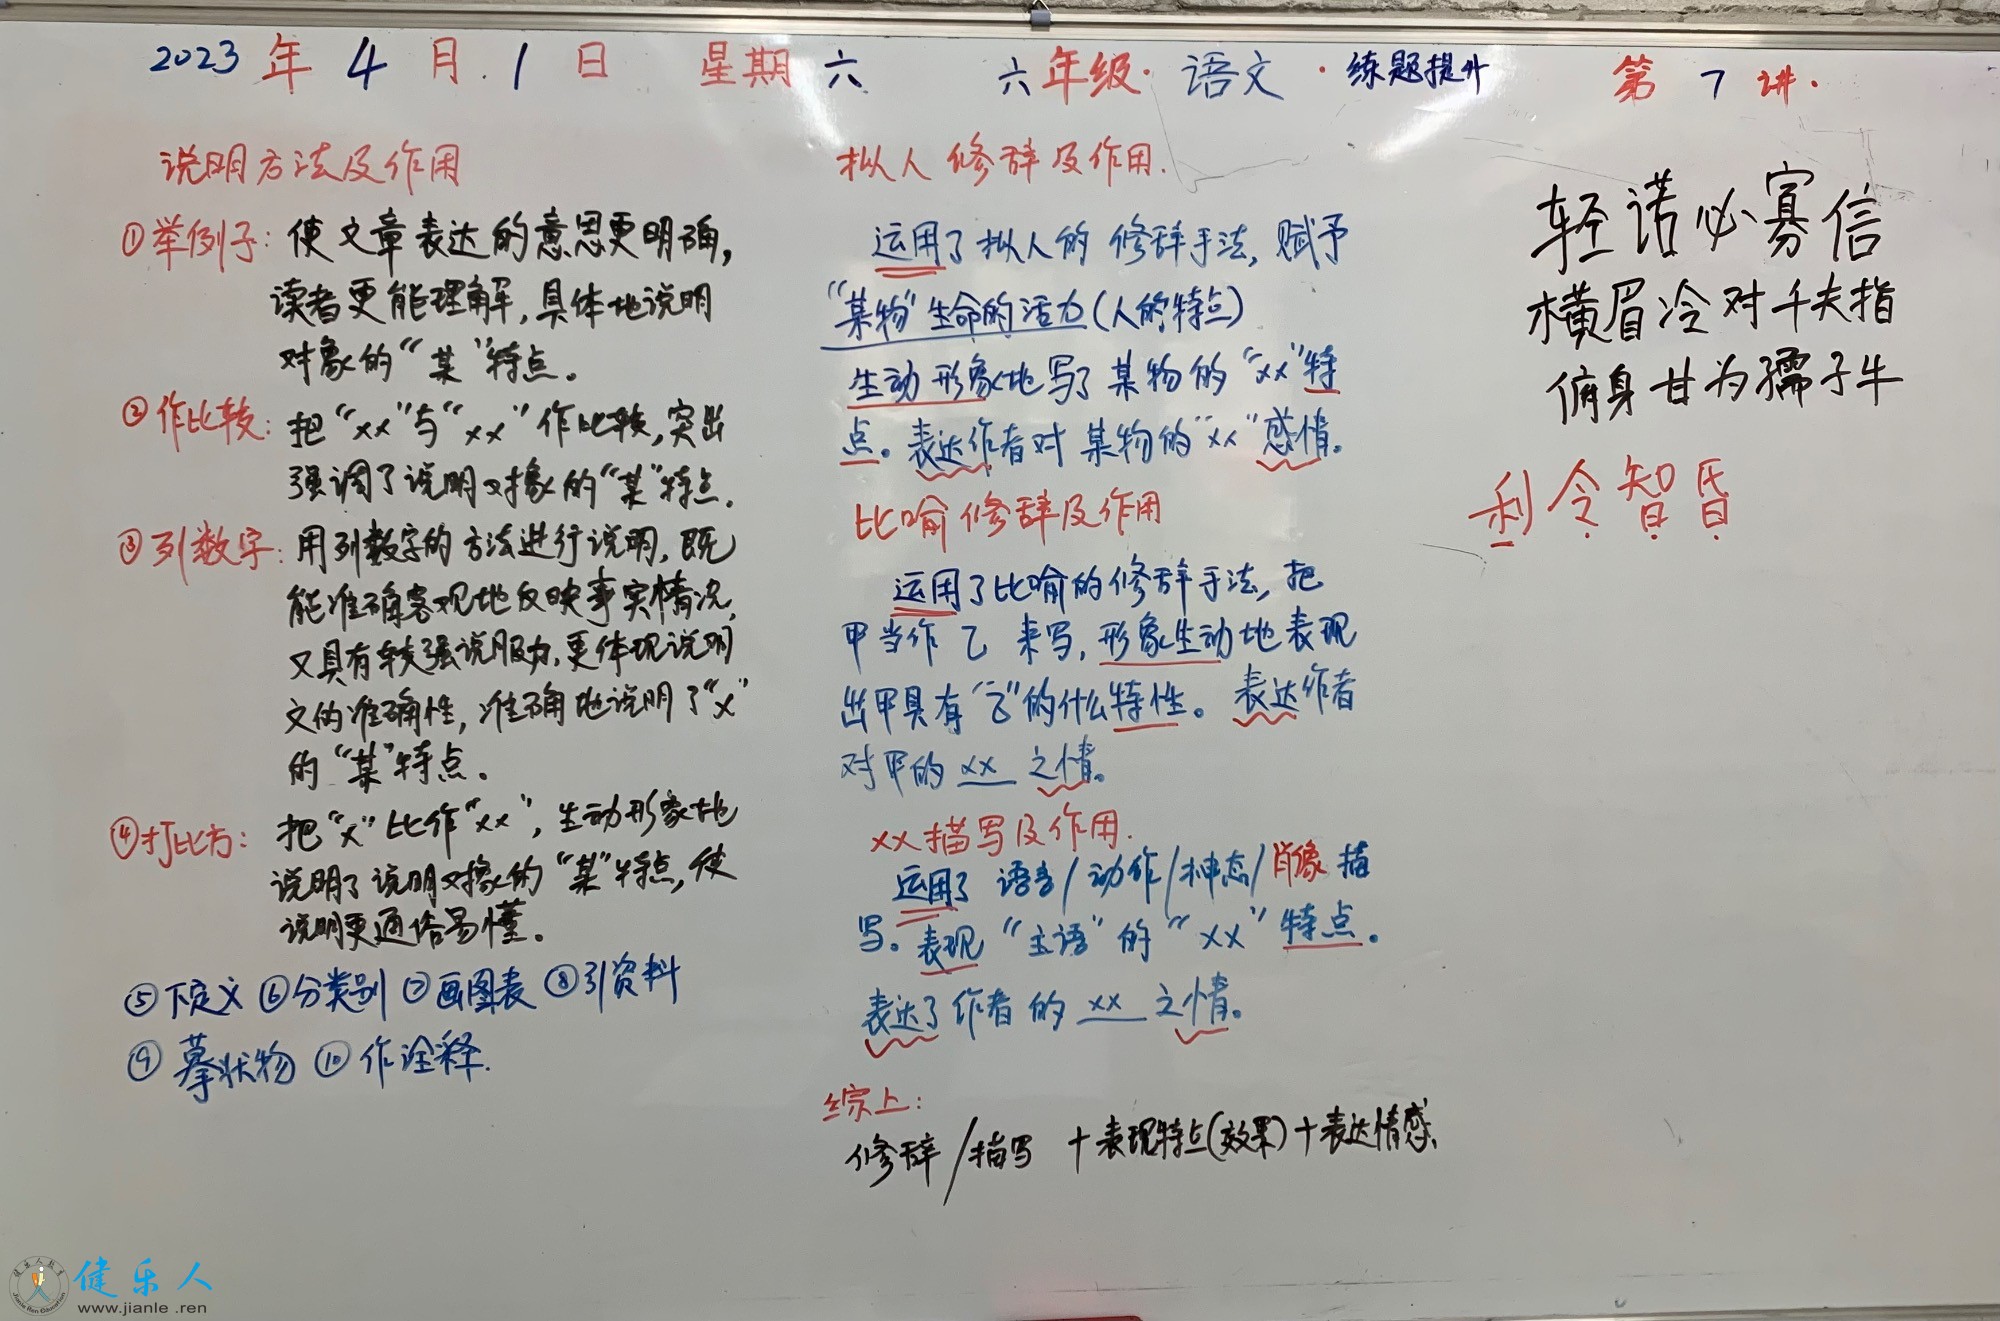 2023年4月1日 星期六 六年级·语文·练题提升 第7讲.
说明方法及作用
①举例子:使文章表达的意思更明确,
读者更能理解,具体地说明
对象的“某”特点。
②作比较:把“xx”与“xx”作比较,突出
强调了说明对象的“某”特点.
③列数字:用列数字的方法进行说明,既
能准确客观地反映事实情况,
又具有较强说服力,更体现说明
文的准确性,准确地说明了“x”
的“某”特点。
④打比方:把“x”比作“xx”,生动形象地
说明了说明对象的“某”特点,使
说明更通俗易懂。
⑤下定义 ⑥分类别 ⑦画图表 ⑧引资料
⑨摹状物 ⑩作诠释.
拟人修辞及作用.
运用了拟人的修辞手法,赋予
“某物”生命的活力(人的特点)
生动形象地写了某物的“xx”特
点。表达作者对某物的“xx”感情。
比喻修辞及作用
运用了比喻的修辞手法,把
甲当作乙来写,形象生动地表现
出甲具有“乙”的什么特性。表达作者
对甲的xx之情。
xx描写及作用.
运用了语言/动作/神态/肖像描
写。表现“主语”的“xx”特点。
表达了作者的xx之情。
综上:
修辞/描写+表现特点(效果)+表达情感.
轻诺必寡信
横眉冷对千夫指
俯身甘为孺子牛
利令智昏
健乐人
www.jianle.ren